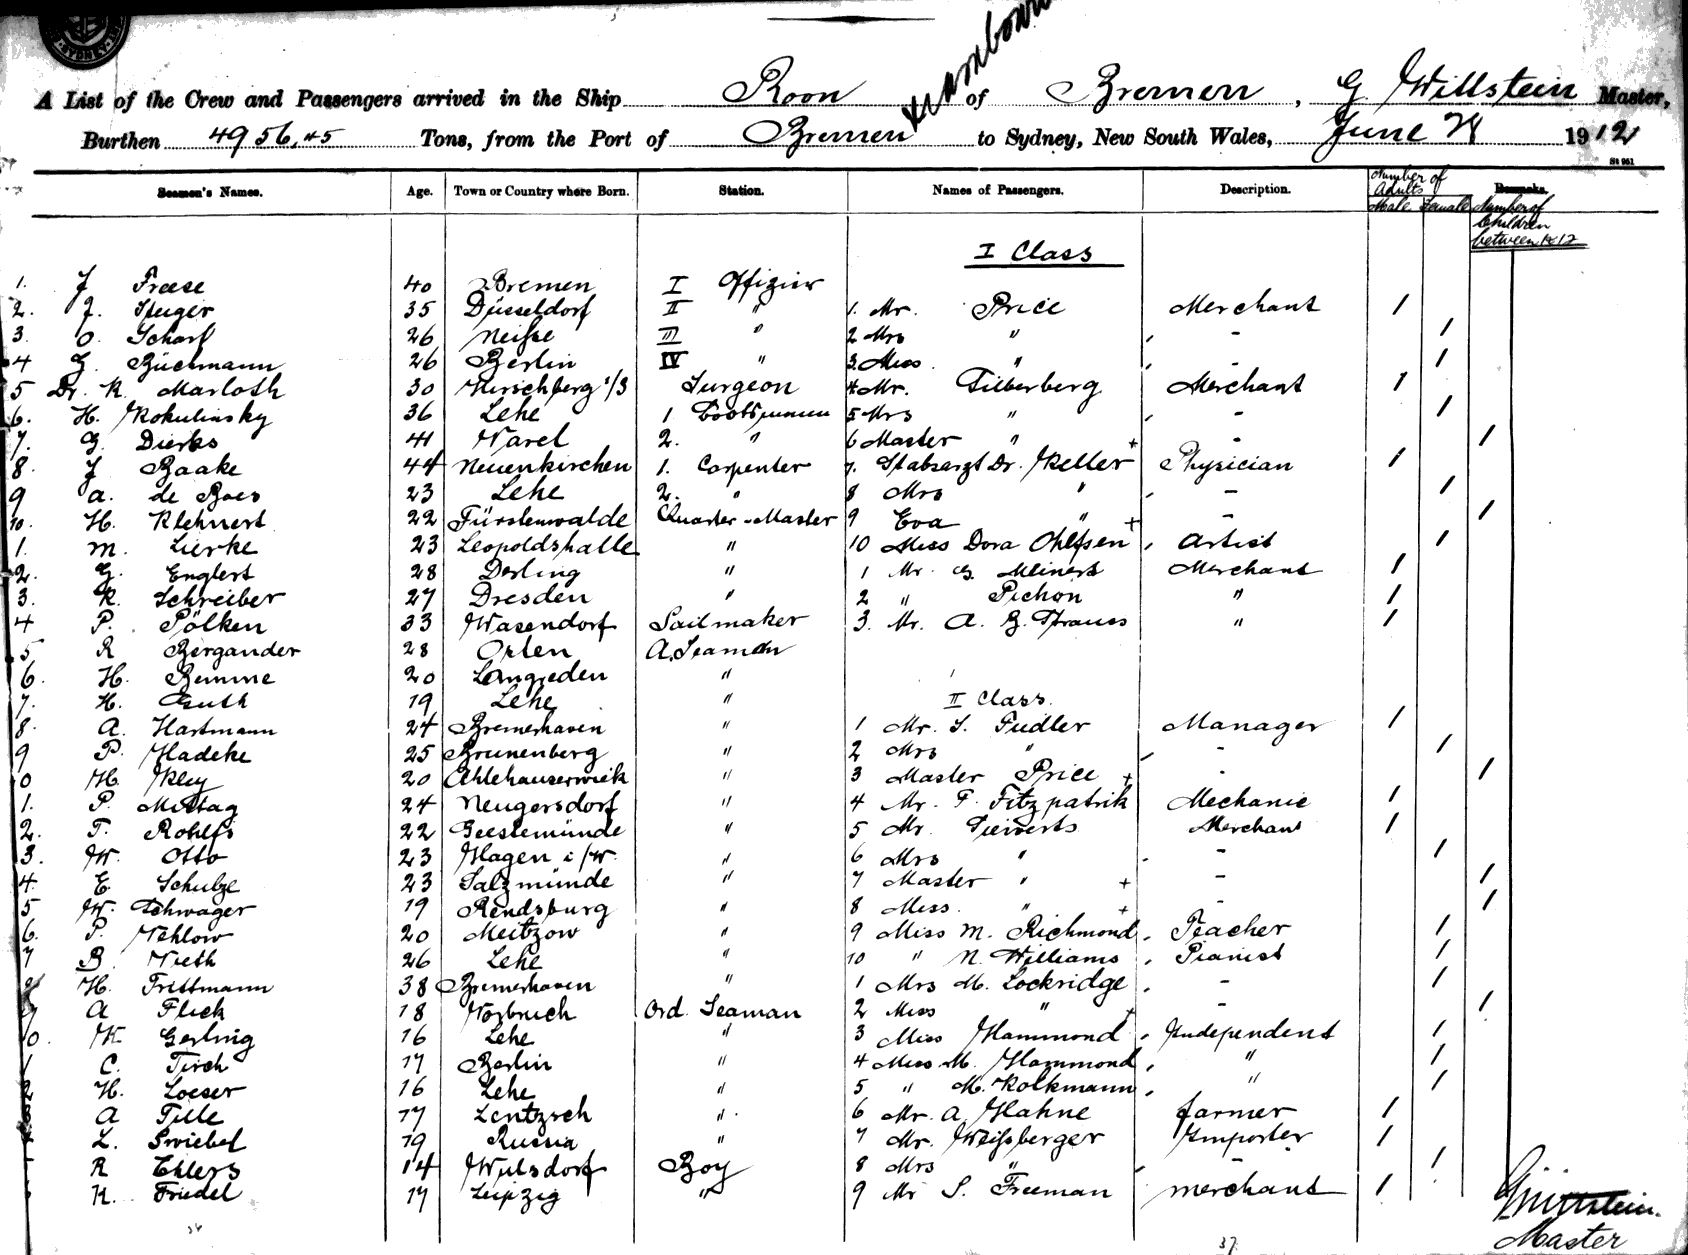 SYDNEY
A List of the Crew and Passengers arrived in the Ship Roon of Bremen, G Willstein Master,
Burthen 4956,45 Tons, from the Port of Bremen to Sydney, New South Wales, June 28 1912
St 951
Seamen's Names. Age. Town or Country where Born. Station. Names of Passengers. Description. Number of Adults Male Female Remarks. Number of Children between 1 & 12
I Class
1. J Freese 40 Bremen I Offizier
2. J. Steger 35 Düsseldorf II " 1. Mr. Price Merchant 1
3. O. Scharf 26 Neiße III " 2 Mrs " - 1
4 G. Büchmann 26 Berlin IV " 3. Miss " - 1
5 Dr. K. Marloth 30 Hirschberg i/S Surgeon 4 Mr. Silberberg Merchant 1
6. H. Kokulinsky 36 Lehe 1 Bootsmann 5 Mrs " - 1
7. G. Dierks 41 Varel 2. " 6 Master " + - 1
8. J Baake 44 Neuenkirchen 1. Carpenter 7. Stabsarzt Dr. Keller Physician 1
9 A. de Boer 23 Lehe 2. " 8 Mrs " - 1
10. H. Klehnert 22 Fürstenwalde Quarter-Master 9 Eva " + - 1
1. M. Lierke 23 Leopoldshalle " 10 Miss Dora Ohlfsen Artist 1
2. G. Englert 28 Derling " 1 Mr. G. Meinert Merchant 1
3. K. Schreiber 27 Dresden " 2 " Pichon " 1
4 P. Pölken 33 Wasendorf Sailmaker 3. Mr. A. G. Strauss " 1
5 R Bergander 28 Orlen A. Seaman
6. H. Bemme 20 Langreden "
7. H. Guth 19 Lehe " II Class.
8. A. Hartmann 24 Bremerhaven " 1 Mr. S. Fudler Manager 1
9 P. Hadeke 25 Brunenberg " 2 Mrs " - 1
0 H. Kley 20 " 3 Master Price + - 1
1. P. Mittag 24 Neugersdorf " 4 Mr. F. Fitzpatrik Mechanic 1
2. F. Rohlfs 22 Geestemünde " 5 Mr. Sieverts Merchant 1
3. W. Otto 23 Hagen i/W. " 6 Mrs " - 1
4. E. Schulze 23 Salzmünde " 7 Master " + - 1
5 W. Schwager 19 Rendsburg " 8 Miss. " + - 1
6. P. Mehlow 20 Meitzow " 9 Miss M. Richmond Teacher 1
7 B. Vieth 26 Lehe " 10 " N. Williams Pianist 1
8 H. Frittmann 38 Bremerhaven " 1 Mrs M. Lockridge - 1
9 A Flick 18 Vorbruch Ord. Seaman 2 Miss " + - 1
0. K Gerling 16 Lehe " 3 Miss Hammond Independent 1
1 C. Tirch 17 Berlin " 4 Miss M. Hammond " 1
2 H. Loeser 16 Lehe " 5 " M. Kolkmann " 1
3 A Tille 17 Lentzsch " 6 Mr. A. Hahne farmer 1
4 L. Swiebel 19 Russia " 7 Mr. Weißberger Importer 1
R Ehlers 14 Wulsdorf Boy 8 Mrs " - 1
K. Friedel 17 Leipzig " 9 Mr S. Freeman merchant 1
G Willstein.
Master
37